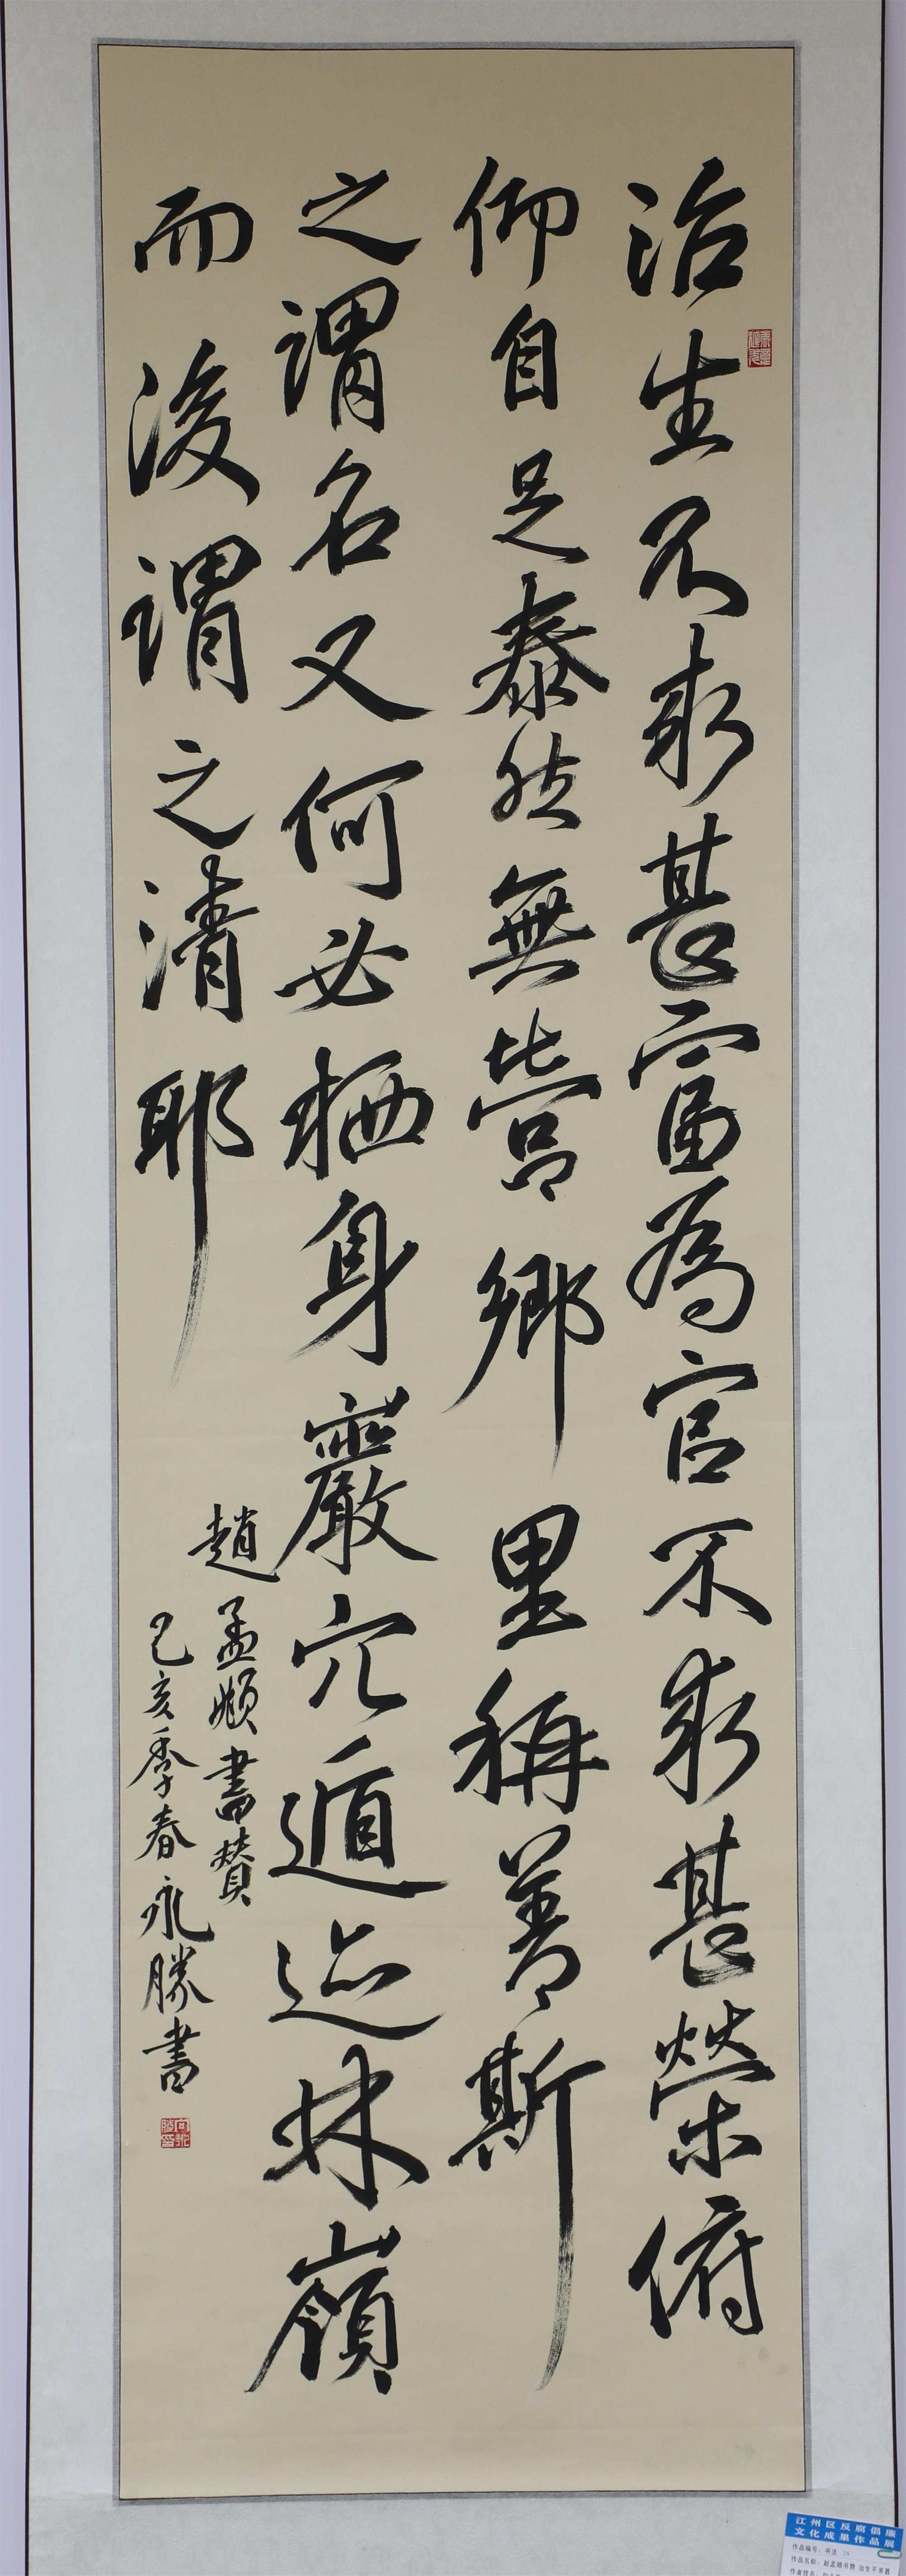 治生不求甚富為官不求甚榮俯
仰自足泰然無營鄉里稱善斯
之謂名又何必栖身巖穴遁迹林嶺
而後謂之清耶
趙孟頫書贊
己亥季春永勝書
江州区反腐倡廉
文化成果作品展
作品编号：书法
作品名称：赵孟頫书赞 治生不求甚
作者姓名：